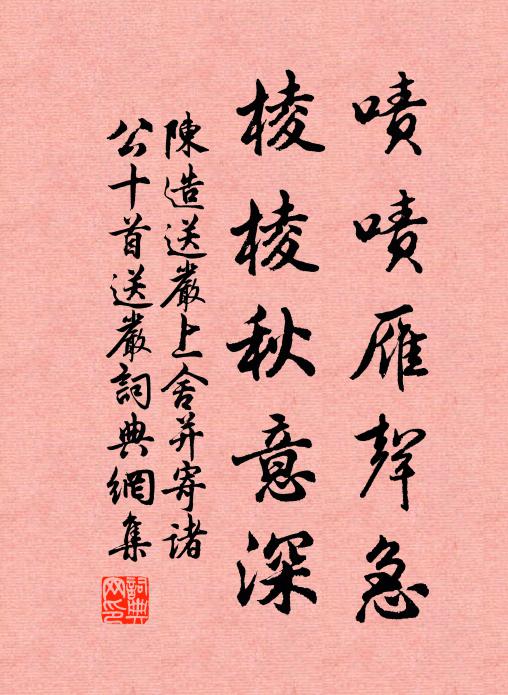 嘖嘖雁聲急
棱棱秋意深
陳造送嚴上舍并寄諸
公十首送嚴詞典網集
詞典網印